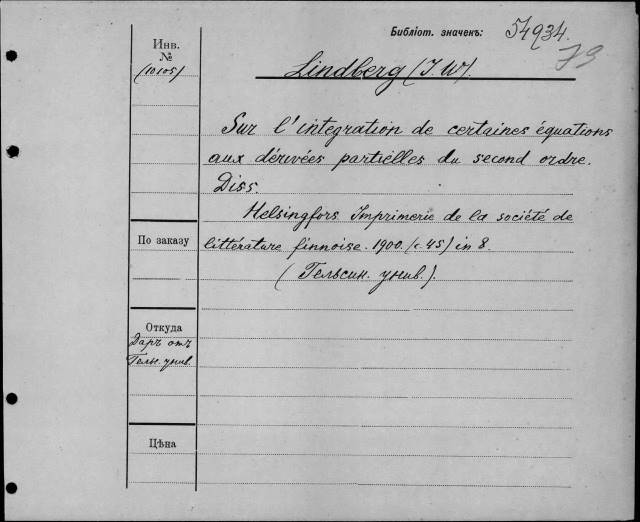 Библіот. значекъ: 54934.
73
Инв.
№
(10105)
Lindberg (J. W).
Sur l'integration de certaines équations
aux dérivées partielles du second ordre.
Diss.
Helsingfors Imprimerie de la société de
По заказу
littérature finnoise. 1900. (c. 45) in 8.
(Гельсин. унив.).
Откуда
Даръ отъ
Гельс. унив.
Цѣна